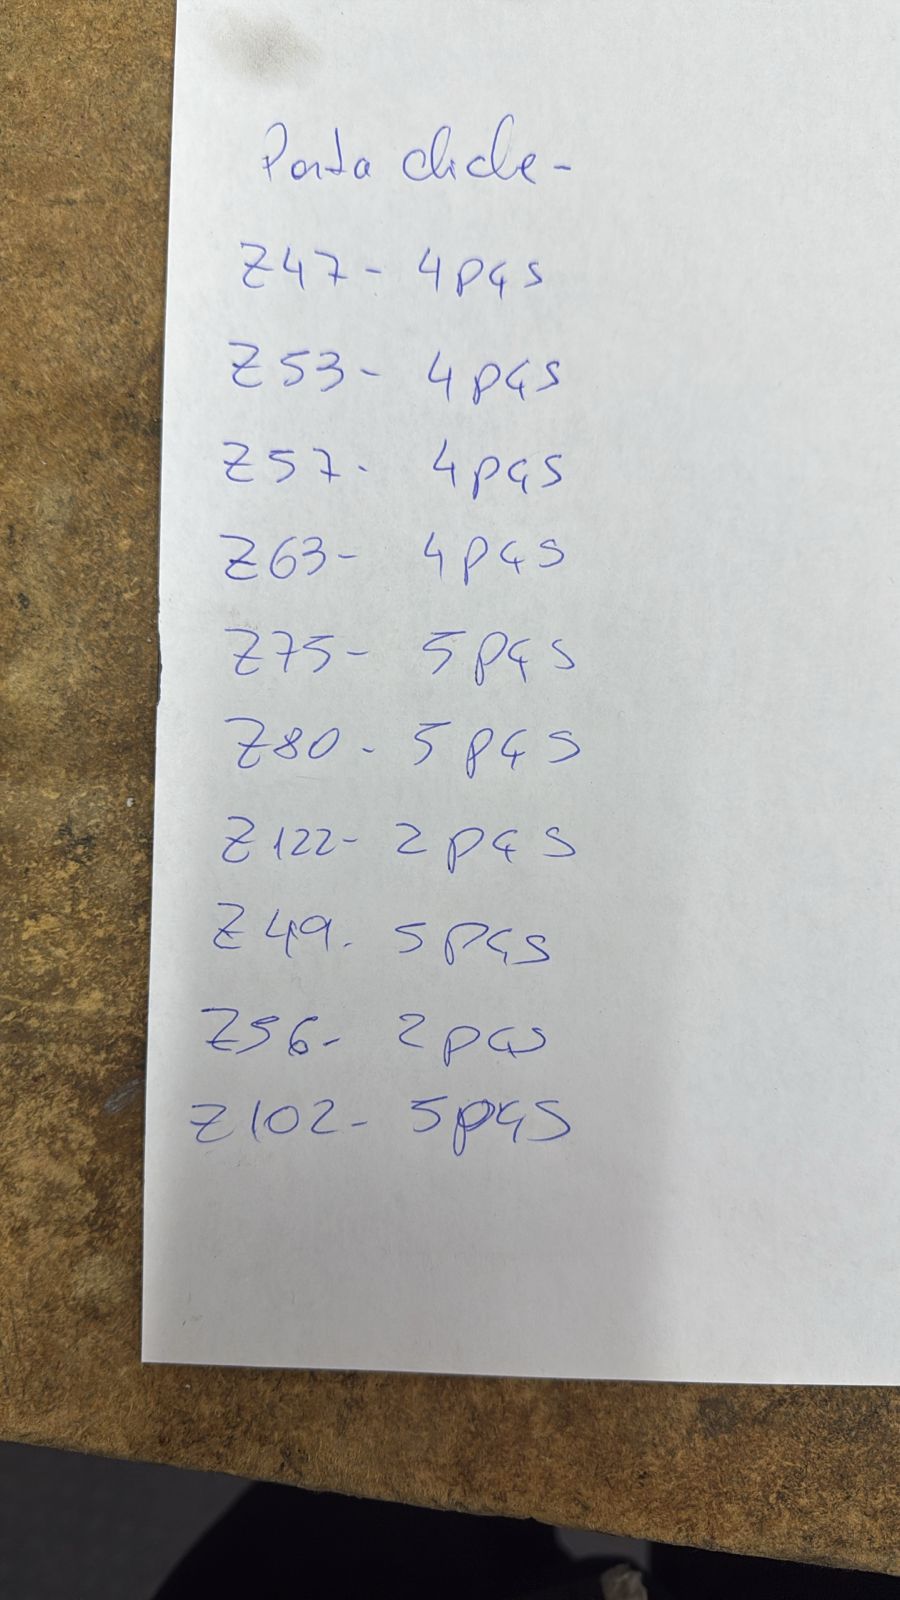 Porta cliche -
Z47 - 4 pçs
Z53 - 4 pçs
Z57 - 4 pçs
Z63 - 4 pçs
Z75 - 5 pçs
Z80 - 5 pçs
Z122 - 2 pçs
Z49 - 5 pçs
Z56 - 2 pçs
Z102 - 5 pçs